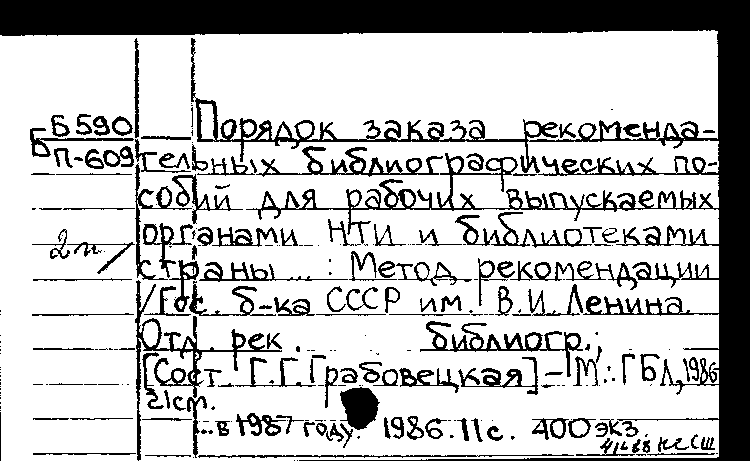 Б590 Порядок заказа рекоменда-
Б П-609 тельных библиографических по-
собий для рабочих выпускаемых
2п/ органами НТИ и библиотеками
страны ... : Метод рекомендации
/Гос. б-ка СССР им. В.И. Ленина.
Отд. рек. библиогр.;
[Сост. Г.Г. Грабовецкая]. – М.: ГБЛ, 1986
21см.
...в 1987 году. 1986. 11с. 400 экз.